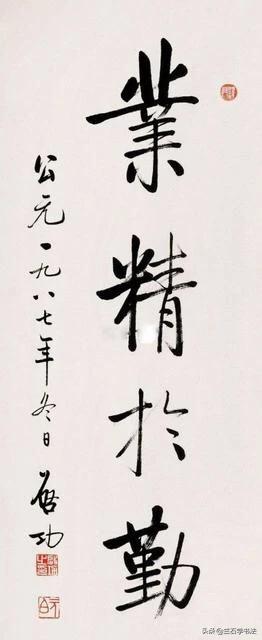 業精於勤
公元一九八七年冬日 启功
头条@兰石学书法